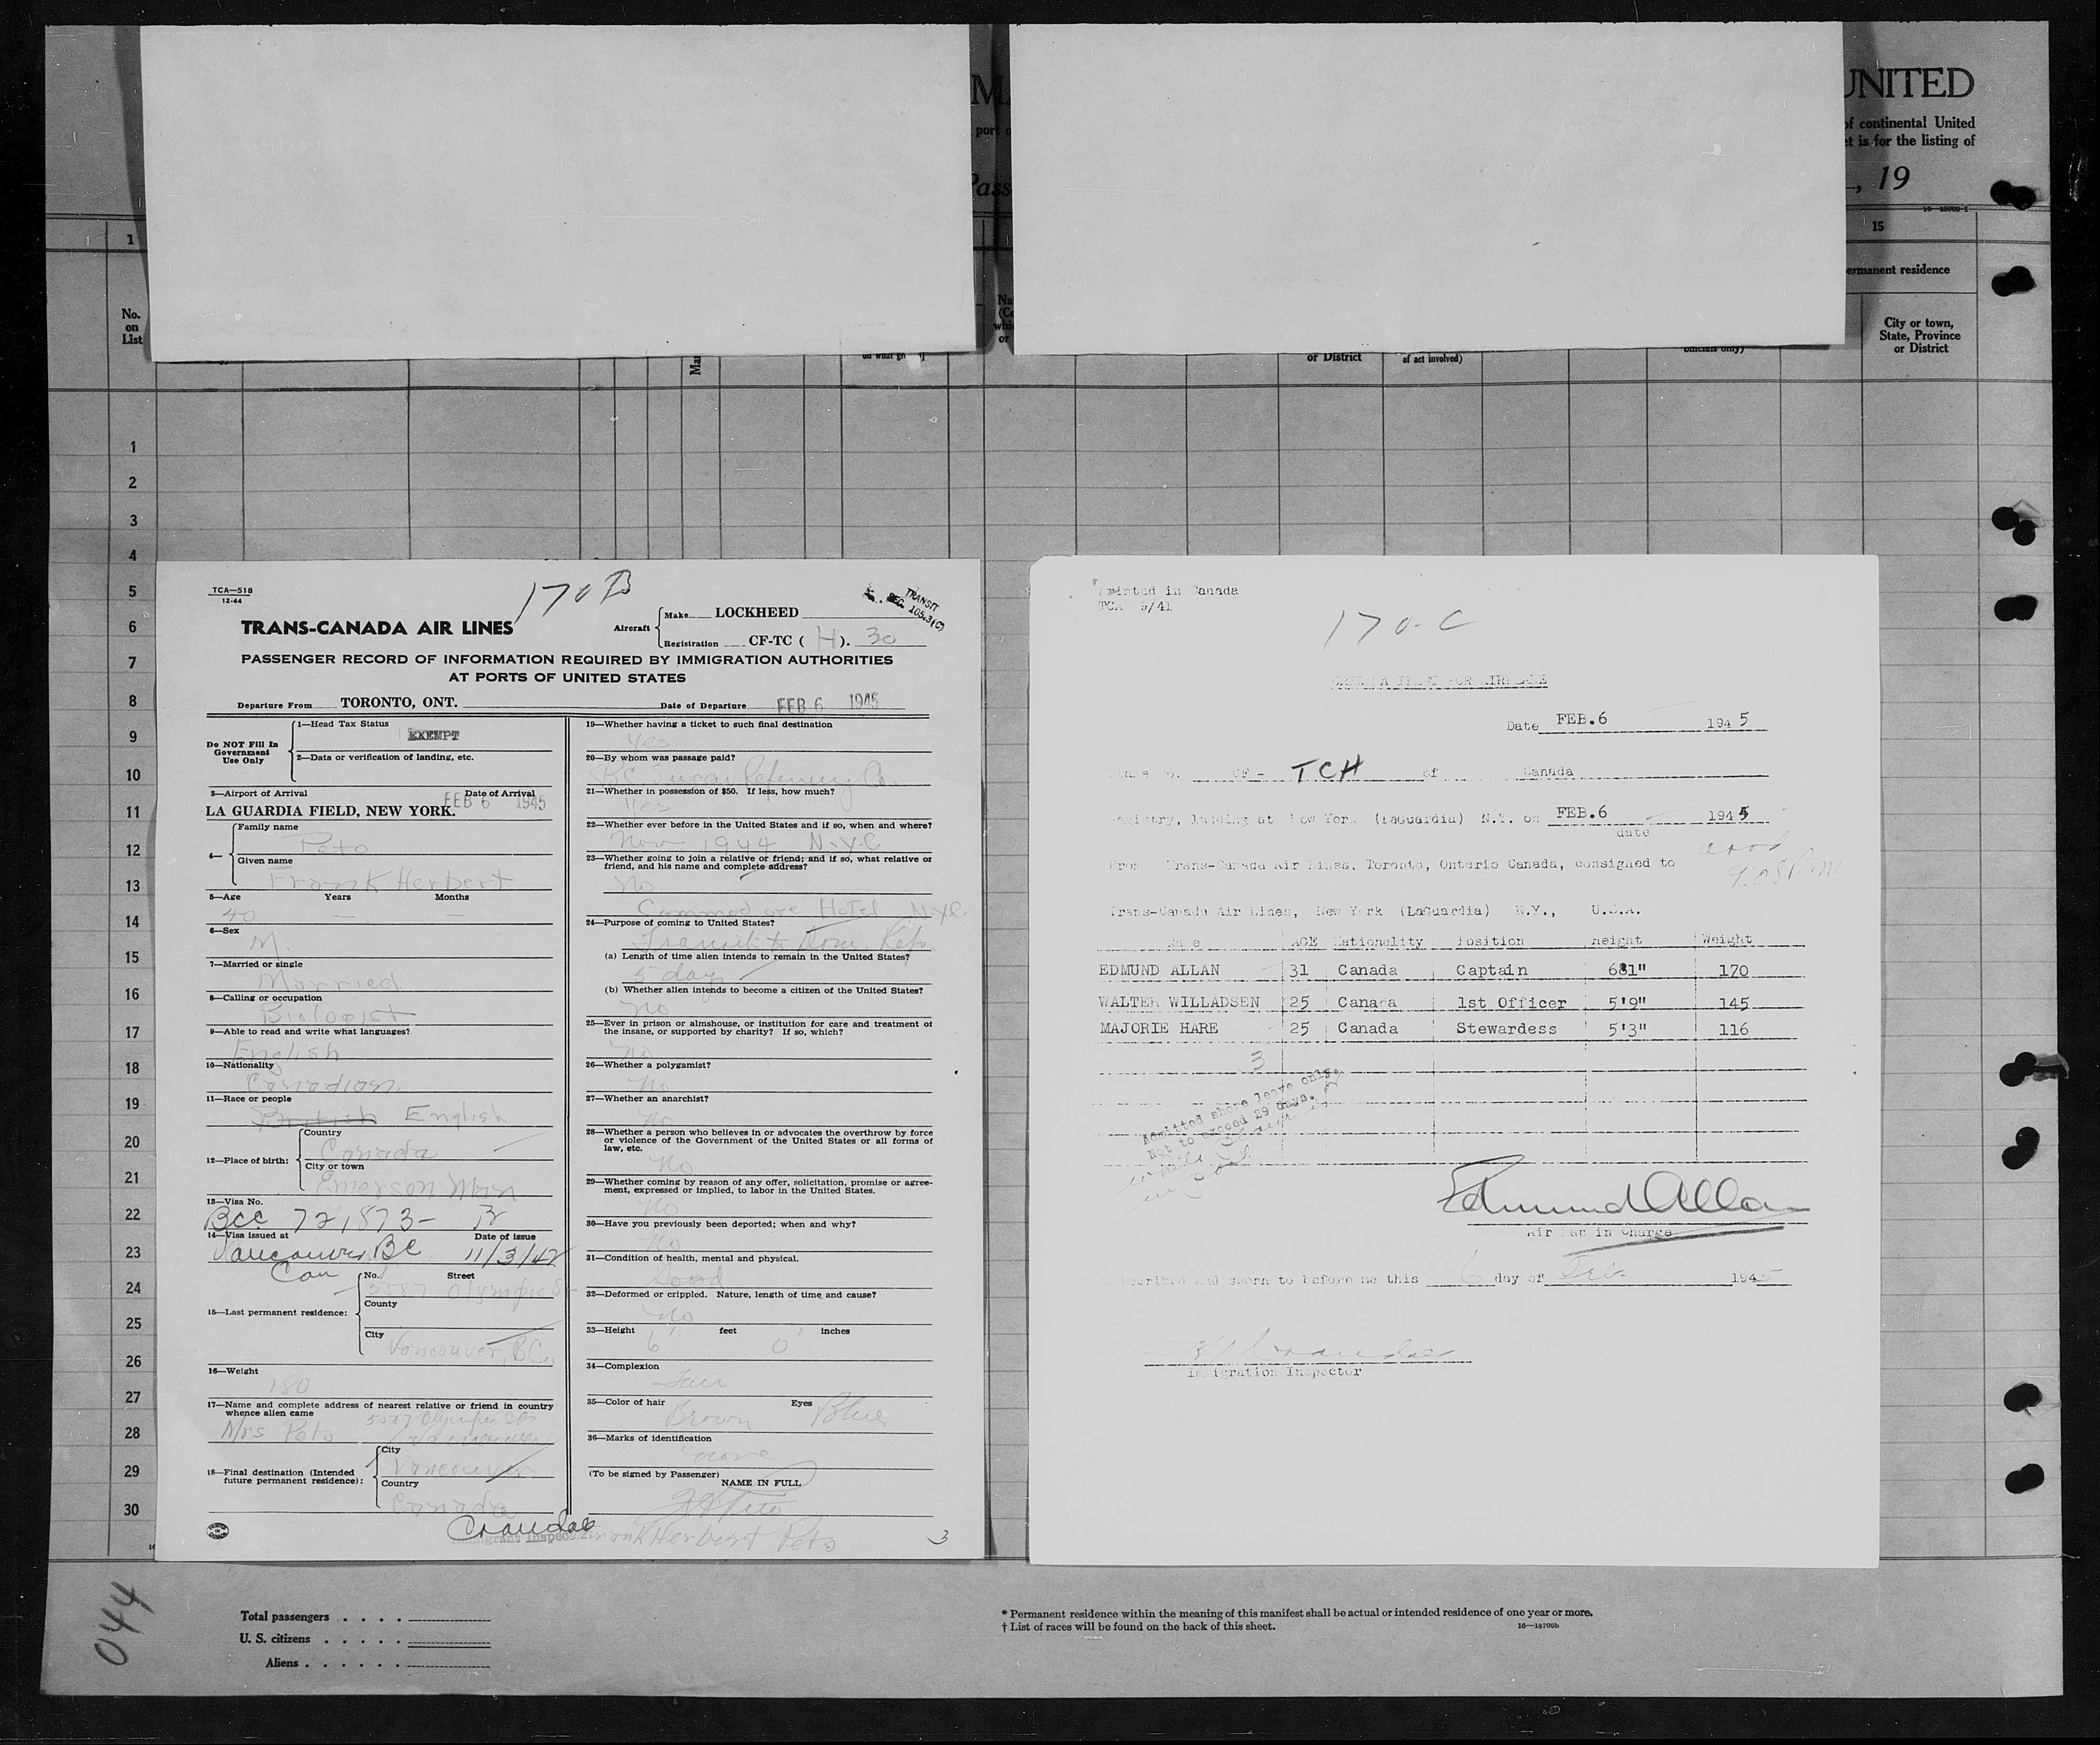 UNITED
port
of continental United
et is for the listing of
Pass
, 19
16—18709-1
1
15
ermanent residence
No.
on
List
City or town,
State, Province
or District
or District
of act involved)
officials only)
1
2
3
4
5
6
7
8
9
10
11
12
13
14
15
16
17
18
19
20
21
22
23
24
25
26
27
28
29
30
TCA—518
12-44
170 B
TRANSIT
SEC. 105.3(C)
TRANS-CANADA AIR LINES
Aircraft
Make LOCKHEED
Registration CF-TC ( H ). 30
PASSENGER RECORD OF INFORMATION REQUIRED BY IMMIGRATION AUTHORITIES
AT PORTS OF UNITED STATES
Departure From TORONTO, ONT. Date of Departure FEB 6 1945
Do NOT Fill In
Government
Use Only
1—Head Tax Status
EXEMPT
2—Data or verification of landing, etc.
3—Airport of Arrival Date of Arrival
LA GUARDIA FIELD, NEW YORK. FEB 6 1945
4—
Family name
Peto
Given name
Frank Herbert
5—Age Years Months
40 — —
6—Sex
M.
7—Married or single
Married
8—Calling or occupation
Biologist
9—Able to read and write what languages?
English
10—Nationality
Canadian
11—Race or people
British English
12—Place of birth:
Country
Canada
City or town
Emerson Man
13—Visa No.
BCC 721,873-
14—Visa issued at Date of issue
Vancouver BC 11/3/42
Can
15—Last permanent residence:
No. Street
5587 Olympic St
County
City
Vancouver, BC.
16—Weight
180
17—Name and complete address of nearest relative or friend in country
whence alien came
5587 Olympic St
Mrs Peto Vancouver
18—Final destination (Intended
future permanent residence):
City
Vancouver
Country
Canada
Crandall
Immigrant Inspector
19—Whether having a ticket to such final destination
Yes
20—By whom was passage paid?
B.C. Sugar Refinery Co.
21—Whether in possession of $50. If less, how much?
Yes
22—Whether ever before in the United States and if so, when and where?
Nov 1944 N.Y.C
23—Whether going to join a relative or friend; and if so, what relative or
friend, and his name and complete address?
No
Commodore Hotel N.Y.C
24—Purpose of coming to United States?
Transit to Dom. Rep
(a) Length of time alien intends to remain in the United States?
5 days
(b) Whether alien intends to become a citizen of the United States?
No
25—Ever in prison or almshouse, or institution for care and treatment of
the insane, or supported by charity? If so, which?
No
26—Whether a polygamist?
No
27—Whether an anarchist?
No
28—Whether a person who believes in or advocates the overthrow by force
or violence of the Government of the United States or all forms of
law, etc.
No
29—Whether coming by reason of any offer, solicitation, promise or agree-
ment, expressed or implied, to labor in the United States.
No
30—Have you previously been deported; when and why?
No
31—Condition of health, mental and physical.
Good
32—Deformed or crippled. Nature, length of time and cause?
No
33—Height feet inches
6' 0'
34—Complexion
Fair
35—Color of hair Eyes
Brown Blue
36—Marks of identification
none
(To be signed by Passenger)
NAME IN FULL
F H Peto
Frank Herbert Peto
3
Printed in Canada
TCA 9/41
170-C
Date FEB.6 1945
CF - TCH of Canada
Registry, landing at New York (LaGuardia) N.Y. on FEB.6 1945
date
From Trans-Canada Air Lines, Toronto, Ontario Canada, consigned to
Trans-Canada Air Lines, New York (LaGuardia) N.Y., U.S.A.
Name AGE Nationality Position Height Weight
EDMUND ALLAN 31 Canada Captain 6'1" 170
WALTER WILLADSEN 25 Canada 1st Officer 5'9" 145
MAJORIE HARE 25 Canada Stewardess 5'3" 116
3
Admitted shore leave only,
Not to exceed 29 days.
Edmund Allan
Air Man in Charge
Subscribed and sworn to before me this 6 day of Feb. 1945
Immigration Inspector
044
Total passengers . . . .
U. S. citizens . . . . .
Aliens . . . . . .
* Permanent residence within the meaning of this manifest shall be actual or intended residence of one year or more.
† List of races will be found on the back of this sheet.
16—18709b